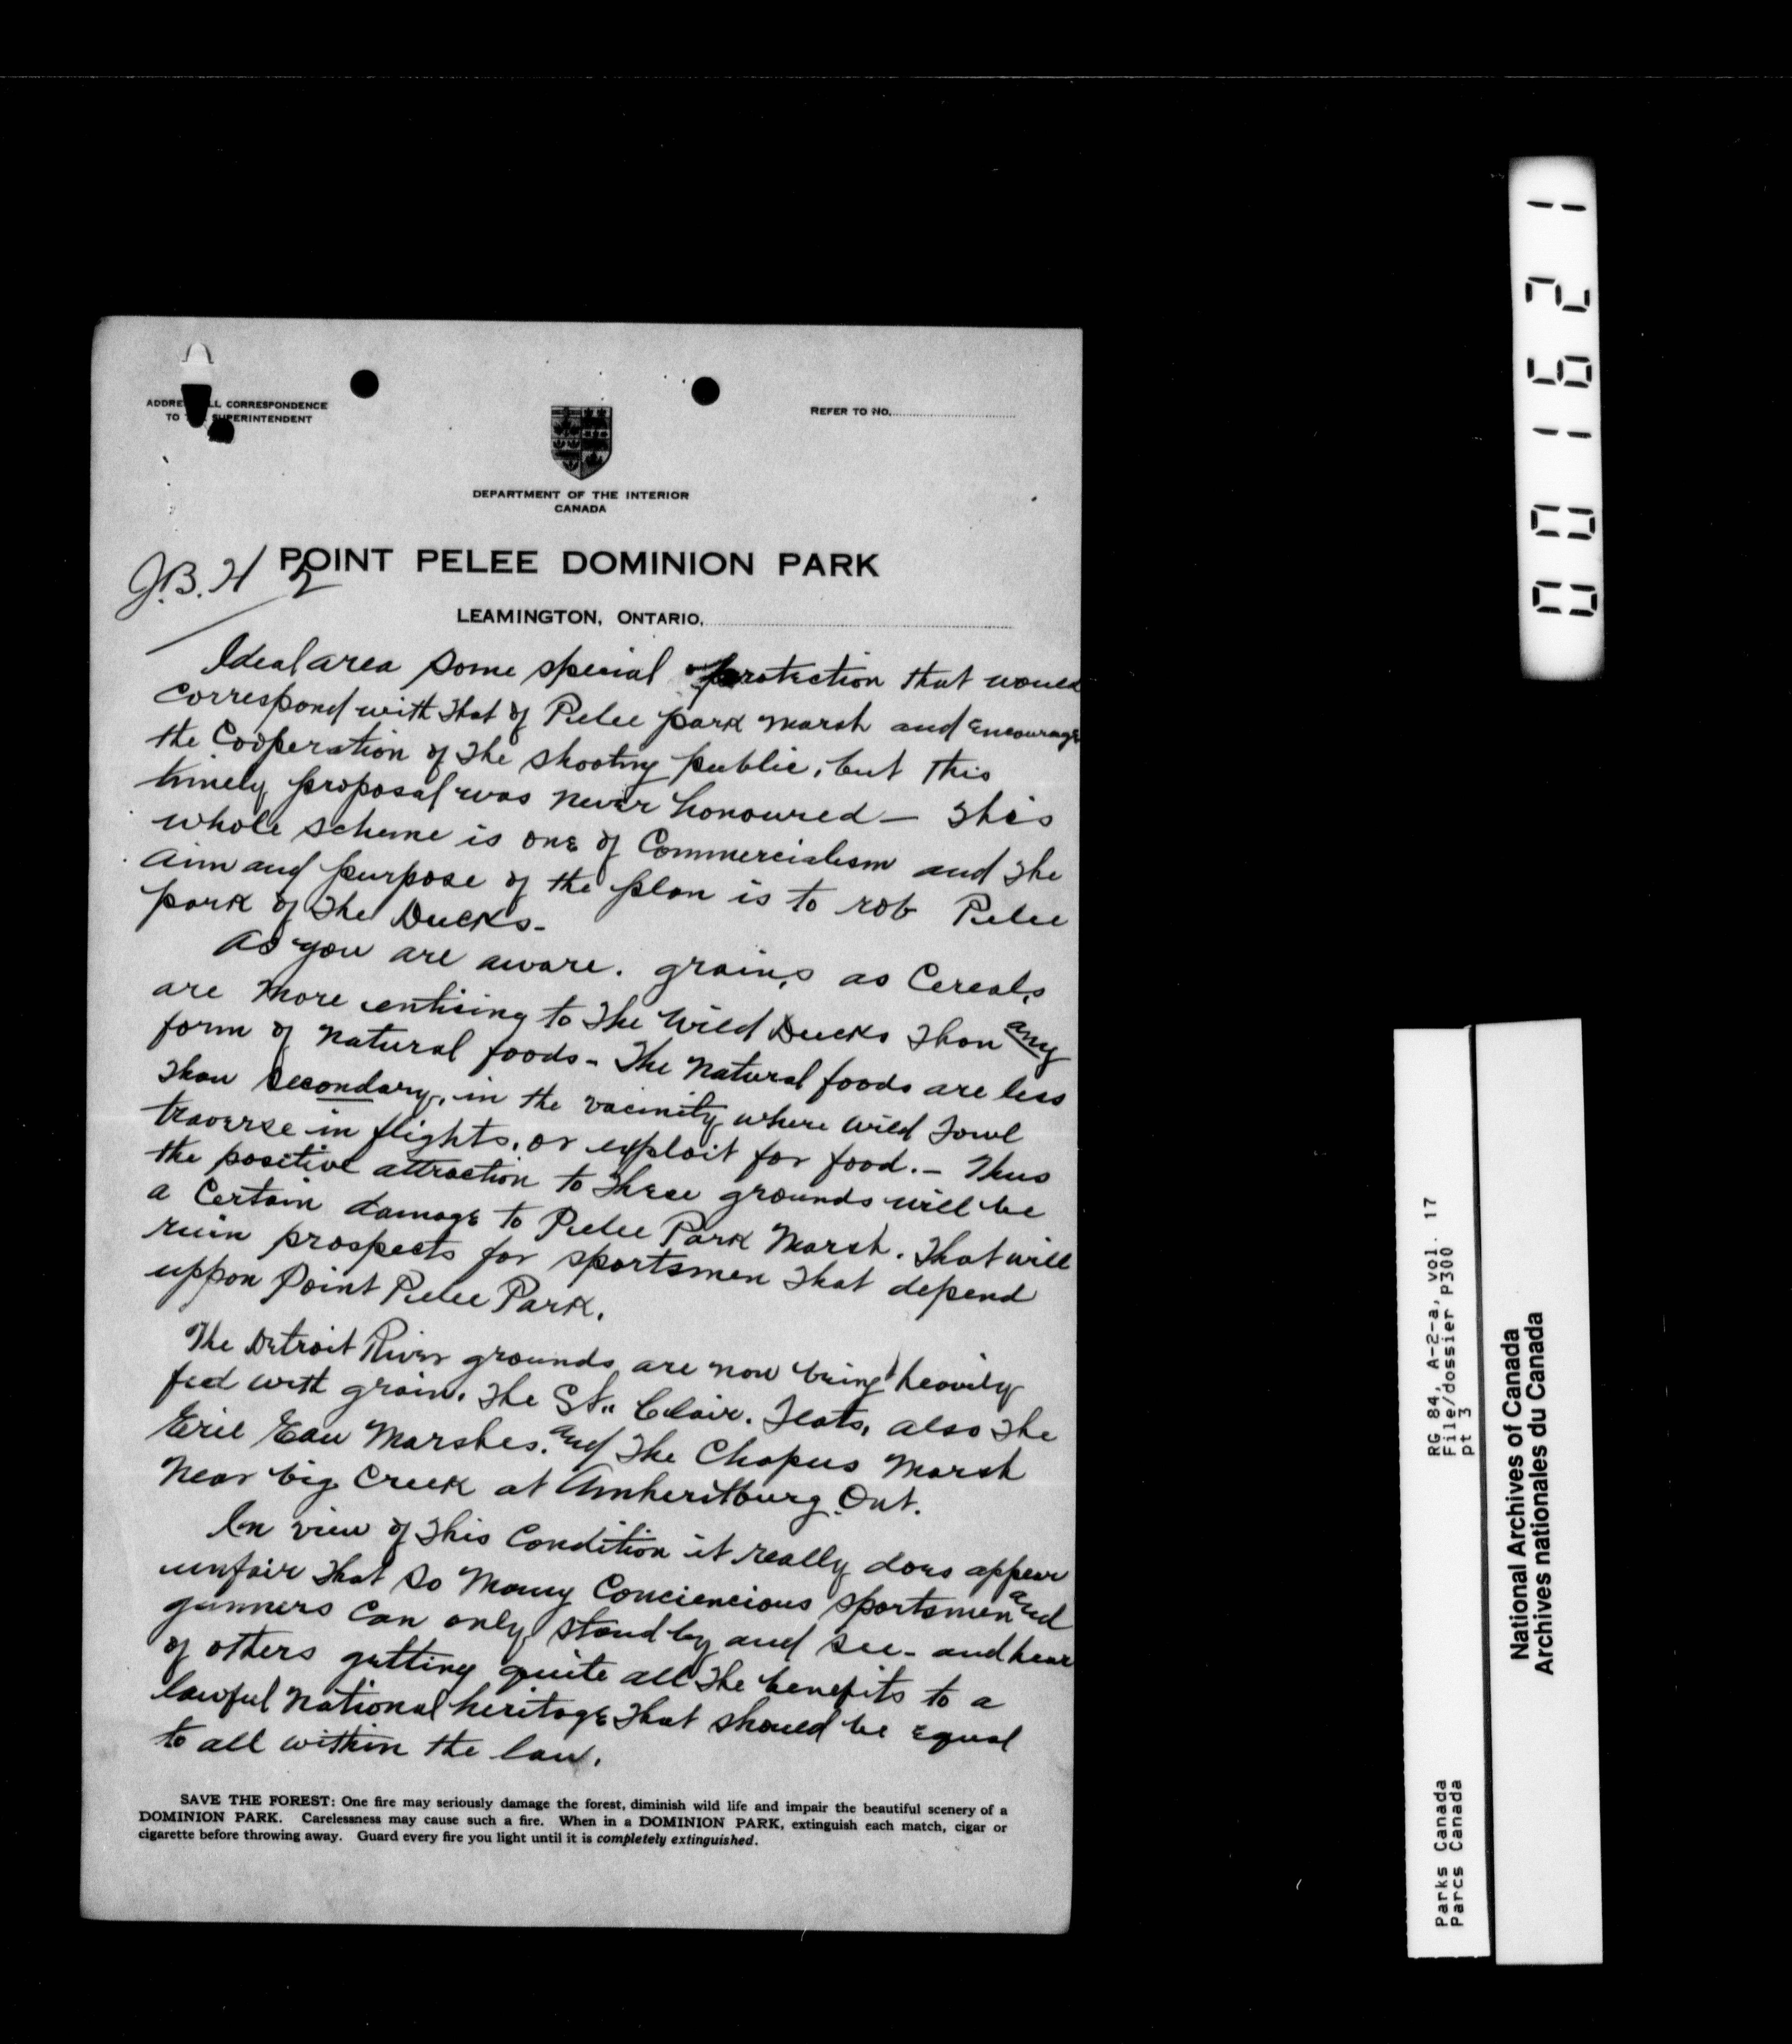 ADDRE LL CORRESPONDENCE
TO SUPERINTENDENT
REFER TO NO.
DEPARTMENT OF THE INTERIOR
CANADA
POINT PELEE DOMINION PARK
J.B.H 2
LEAMINGTON, ONTARIO,
Ideal area some special protection that would
correspond with that of Pelee park Marsh and Encourage
the Cooperation of the shooting public, but this
timely proposal was never honoured — This
whole scheme is one of Commercialism and the
aim and purpose of the plan is to rob Pelee
park of the Ducks.
As you are aware. grains, as Cereals,
are more entising to the Wild Ducks than any
form of natural foods - The natural foods are less
than secondary, in the vacinity where Wild Fowl
traverse in flights, or exploit for food. — Thus
the positive attraction to these grounds will be
a Certain damage to Pelee Park Marsh. That will
ruin prospects for sportsmen that depend
uppon Point Pelee Park.
The Detroit River grounds are now being heavily
fed with grain. The St. Clair. Flats, also the
Erie Eau Marshes. and the Chapus Marsh
near big Creek at Amheritburg. Ont.
In view of this Condition it really does appear
unfair that so Many Conciencious sportsmen and
gunners Can only stand by and see - and hear
of others getting quite all the benefits to a
lawful national heritage that should be equal
to all within the law.
SAVE THE FOREST: One fire may seriously damage the forest, diminish wild life and impair the beautiful scenery of a
DOMINION PARK. Carelessness may cause such a fire. When in a DOMINION PARK, extinguish each match, cigar or
cigarette before throwing away. Guard every fire you light until it is completely extinguished.
001621
RG 84, A-2-a, vol. 17
File/dossier P300
pt 3
Parks Canada
Parcs Canada
National Archives of Canada
Archives nationales du Canada